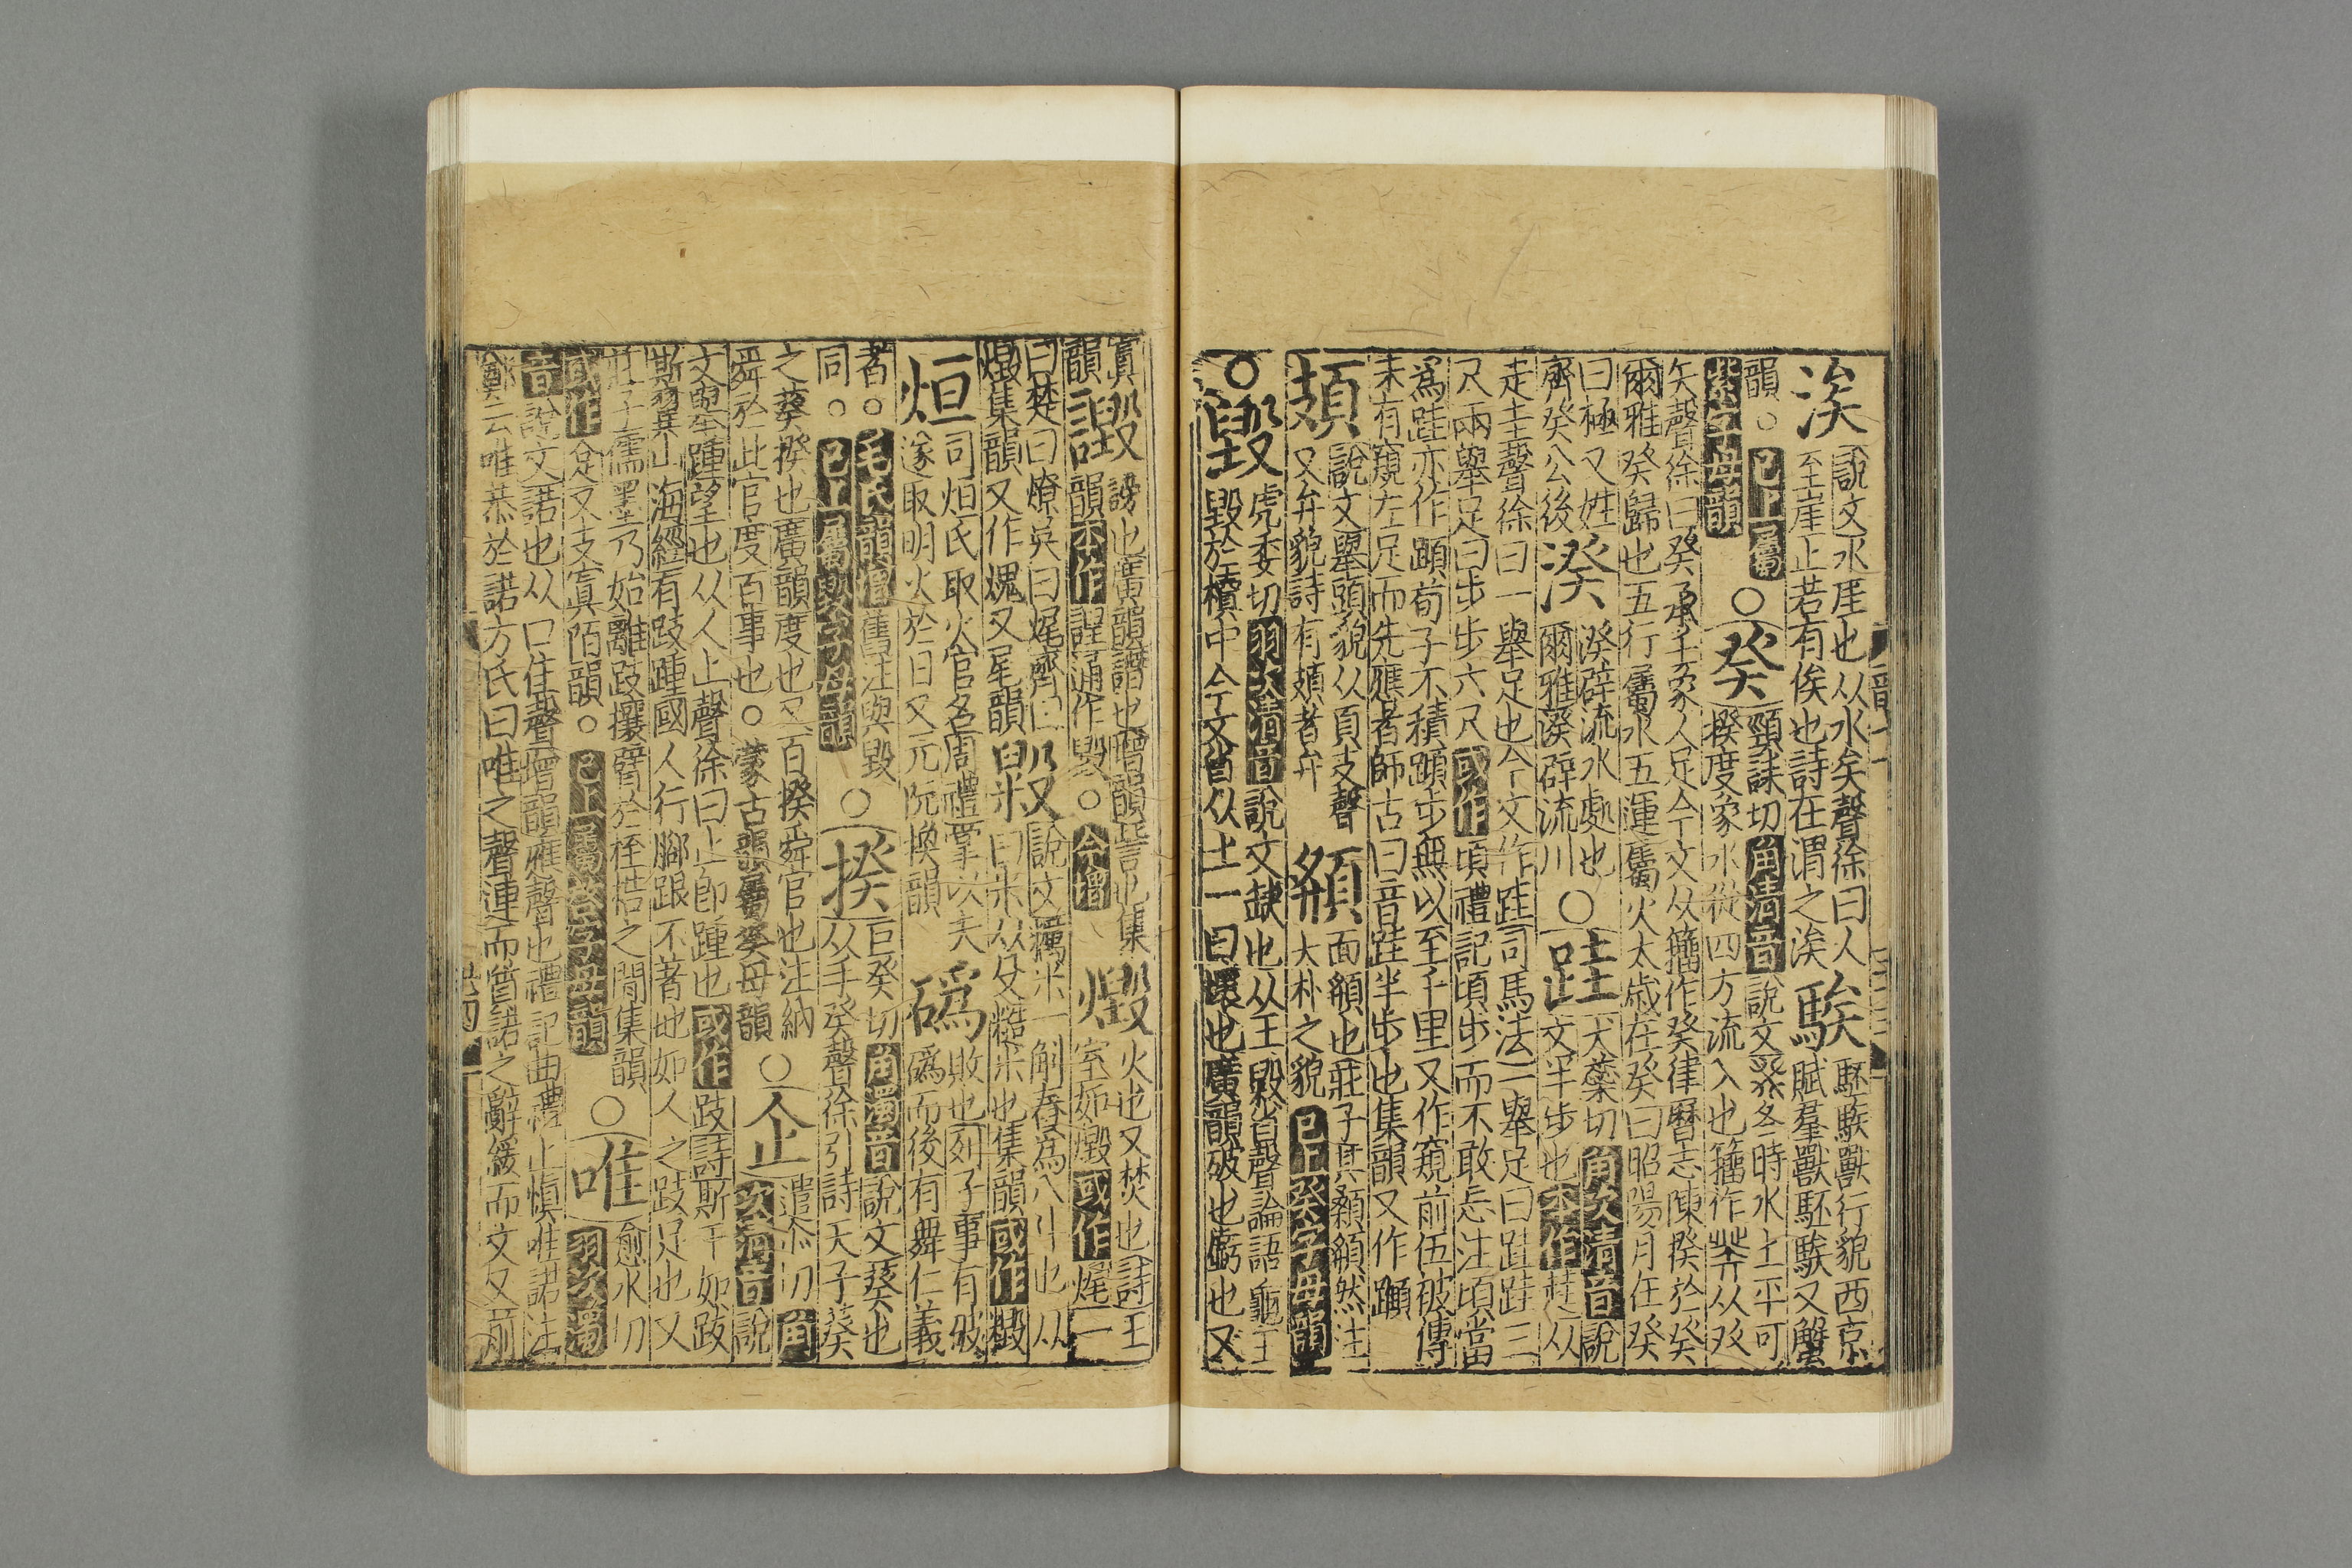 涘
說文水厓也从水矣聲徐曰人
至崖止若有俟也詩在渭之涘
騃
駓騃獸行貌西京
賦羣獸駓騃又蟹
韻○已上屬
紫字母韻
○癸
頸誄切角清音說文癸冬時水土平可
揆度象水從四方流入也籀作𤼩从癶
矢聲徐曰癸承壬象人足今文从籀作癸律曆志陳揆於癸
爾雅癸歸也五行屬水五運屬火太歲在癸曰昭陽月在癸
曰極又姓
齊癸公後
湀
湀辟流水處也
爾雅湀辟流川
○跬
犬蘂切角次清音說
文半步也本作𧻲从
走圭聲徐曰一舉足也今文作跬司馬法一舉足曰跬跬三
尺兩舉足曰步步六尺或作頃禮記頃步而不敢忘注頃當
爲跬亦作蹞荀子不積蹞步無以至千里又作窺前伍被傳
未有窺左足而先應者師古曰音跬半步也集韻又作𨇨
頍
說文舉頭貌从頁支聲
又弁貌詩有頍者弁
頯
面顴也莊子其顙頯然注
大朴之貌已上癸字母韻
○毀
虎委切羽次清音說文缺也从土毇省聲論語龜玉
毀於櫝中今文省从土一曰壞也廣韻破也虧也又
寘
韻
譭
謗也廣韻譖也增韻訾也集
韻本作諻通作毀○今增
燬
火也又焚也詩王
室如燬或作𤈦一
曰楚曰燎吳曰𤈦齊曰
燬集韻又作塊又尾韻
毇
說文糲米一斛舂爲八斗也从
臼米从殳糙米也集韻或作毀
烜
司烜氏取火官名周禮掌以夫
遂取明火於日又元阮換韻
䃣
敗也列子事有破
䃣而後有舞仁義
者○毛氏韻增舊注與毀
同○已上屬毀字母韻
○揆
巨癸切角濁音說文葵也
从手癸聲徐引詩天子葵
之葵揆也廣韻度也又百揆舜官也注納
舜於此官度百事也○蒙古韻屬癸母韻
○企
遣尒切角
次清音說
文舉踵望也从人止聲徐曰止卽踵也或作跂詩斯干如跂
斯翼山海經有跂踵國人行腳跟不著地如人之跂足也又
莊子儒墨乃始離跂攘臂於桎梏之間集韻
或作𠈮又支寘陌韻○已上屬𢀖字母韻
○唯
愈水切
羽次濁
音說文諾也从口隹聲增韻應聲也禮記曲禮上愼唯諾注
鄭云唯恭於諾方氏曰唯之聲連而諾之辭緩而文又前